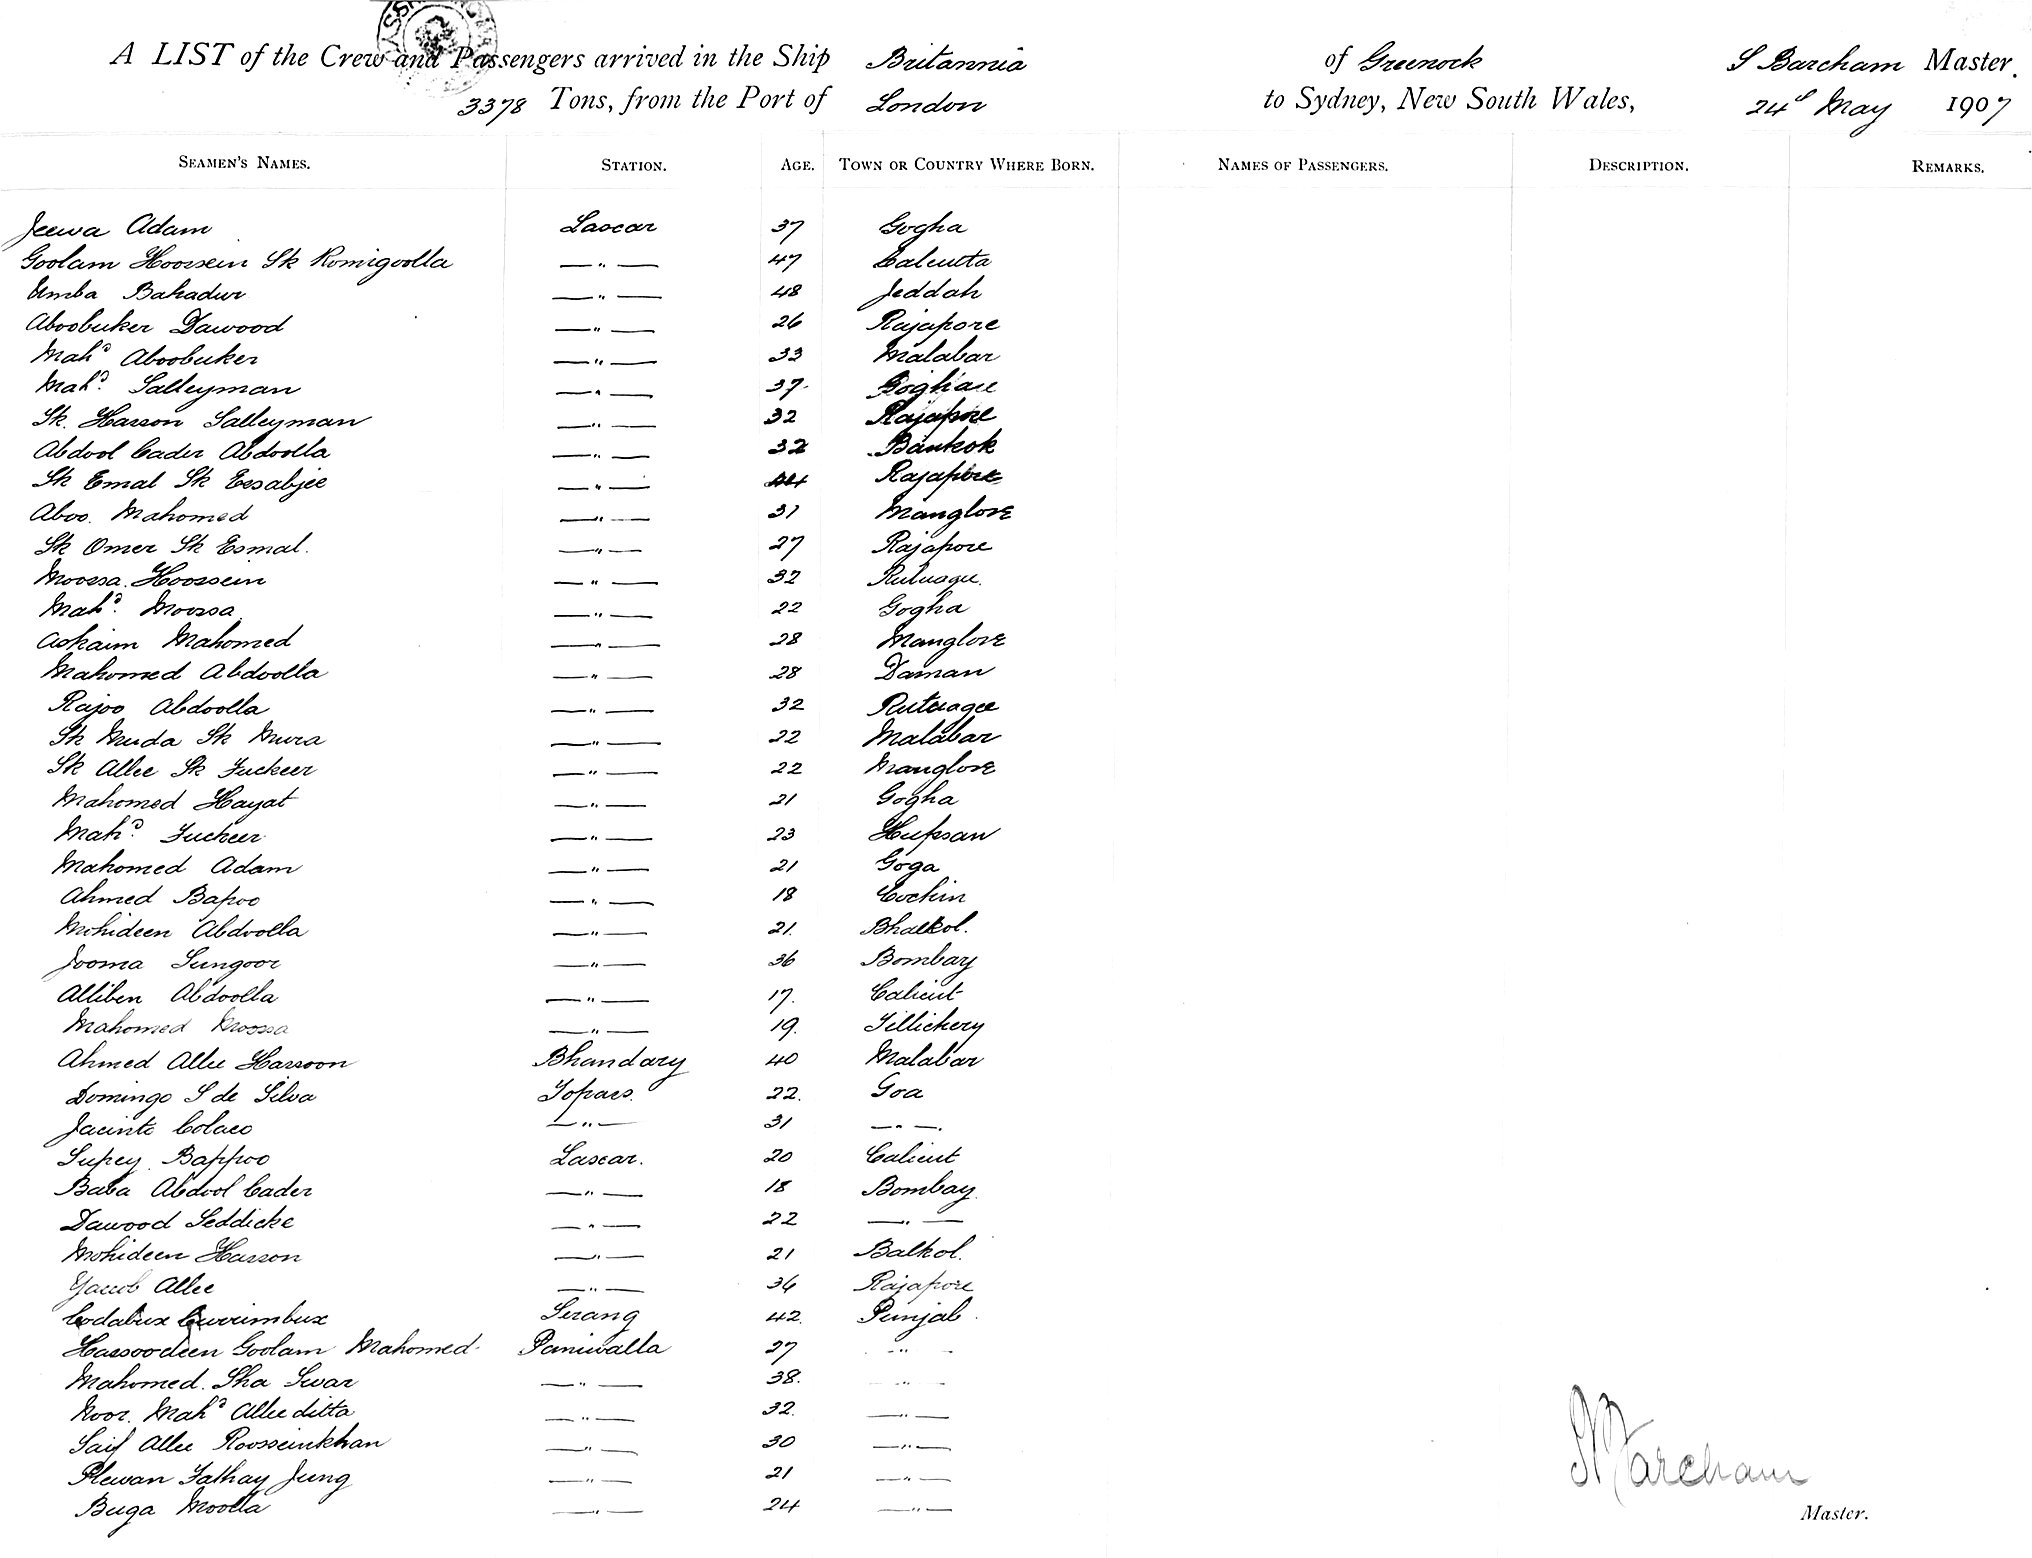 A LIST of the Crew and Passengers arrived in the Ship Britannia of Greenock S Barcham Master.
3378 Tons, from the Port of London to Sydney, New South Wales, 24th May 1907
SEAMEN'S NAMES. STATION. AGE. TOWN OR COUNTRY WHERE BORN. NAMES OF PASSENGERS. DESCRIPTION. REMARKS.
Jeewa Adam Lascar 37 Gogha
Goolam Hoossein Sk Romigoolla — " — 47 Calcutta
Umba Bahadur — " — 48 Jeddah
Aboobuker Dawood — " — 26 Rajapore
Mahd Aboobuker — " — 33 Malabar
Mahd. Salleyman — " — 37
Sk. Hasson Salleyman — " — 32 Rajapore
Abdool Cader Abdoolla — " — 32 Bankok
Sk Emal Sk Eesabjee — " — 44 Rajapore
Aboo. Mahomed — " — 31 Manglore
Sk Omer Sk Esmal. — " — 27 Rajapore
Moossa Hoossein — " — 32
Mahd. Moossa — " — 22 Gogha
Mahomed — " — 28 Manglore
Mahomed Abdoolla — " — 28 Daman
Rajoo Abdoolla — " — 32 Rutnagee
Sk Muda Sk Mura — " — 22 Malabar
Sk Allee Sk Fuckeer — " — 22 Manglore
Mahomed Hayat — " — 21 Gogha
Mahd. Fuckeer — " — 23 Hupsan
Mahomed Adam — " — 21 Goga
Ahmed Bapoo — " — 18 Cochin
Mohideen Abdoolla — " — 21. Bhatkol.
Jooma Sungoor — " — 36 Bombay
Alliben Abdoolla — " — 17. Calicut
Mahomed Moossa — " — 19. Tillichery
Ahmed Allee Hassoon Bhandary 40 Malabar
Domingo S de Silva Topaes. 22. Goa
Jacinto Colaco — " — 31 — " —
Supey Bappoo Lascar. 20 Calicut
Baba Abdool Cader — " — 18 Bombay
Dawood Seddicke — " — 22 — " —
Mohideen Hasson — " — 21 Balkol.
Yacoob Allee — " — 36 Rajapore
Codabux Currimbux Serang 42. Punjab
Hassoodeen Goolam Mahomed Paniwalla 27 — " —
Mahomed. Sha Swar — " — 38. — " —
Noor. Mahd Allee ditta — " — 32. — " —
Saif Allee Roosseinkhan — " — 30 — " —
Plewan Fathay Jung — " — 21 — " —
Buga Moolla — " — 24 — " —
S Barcham
Master.